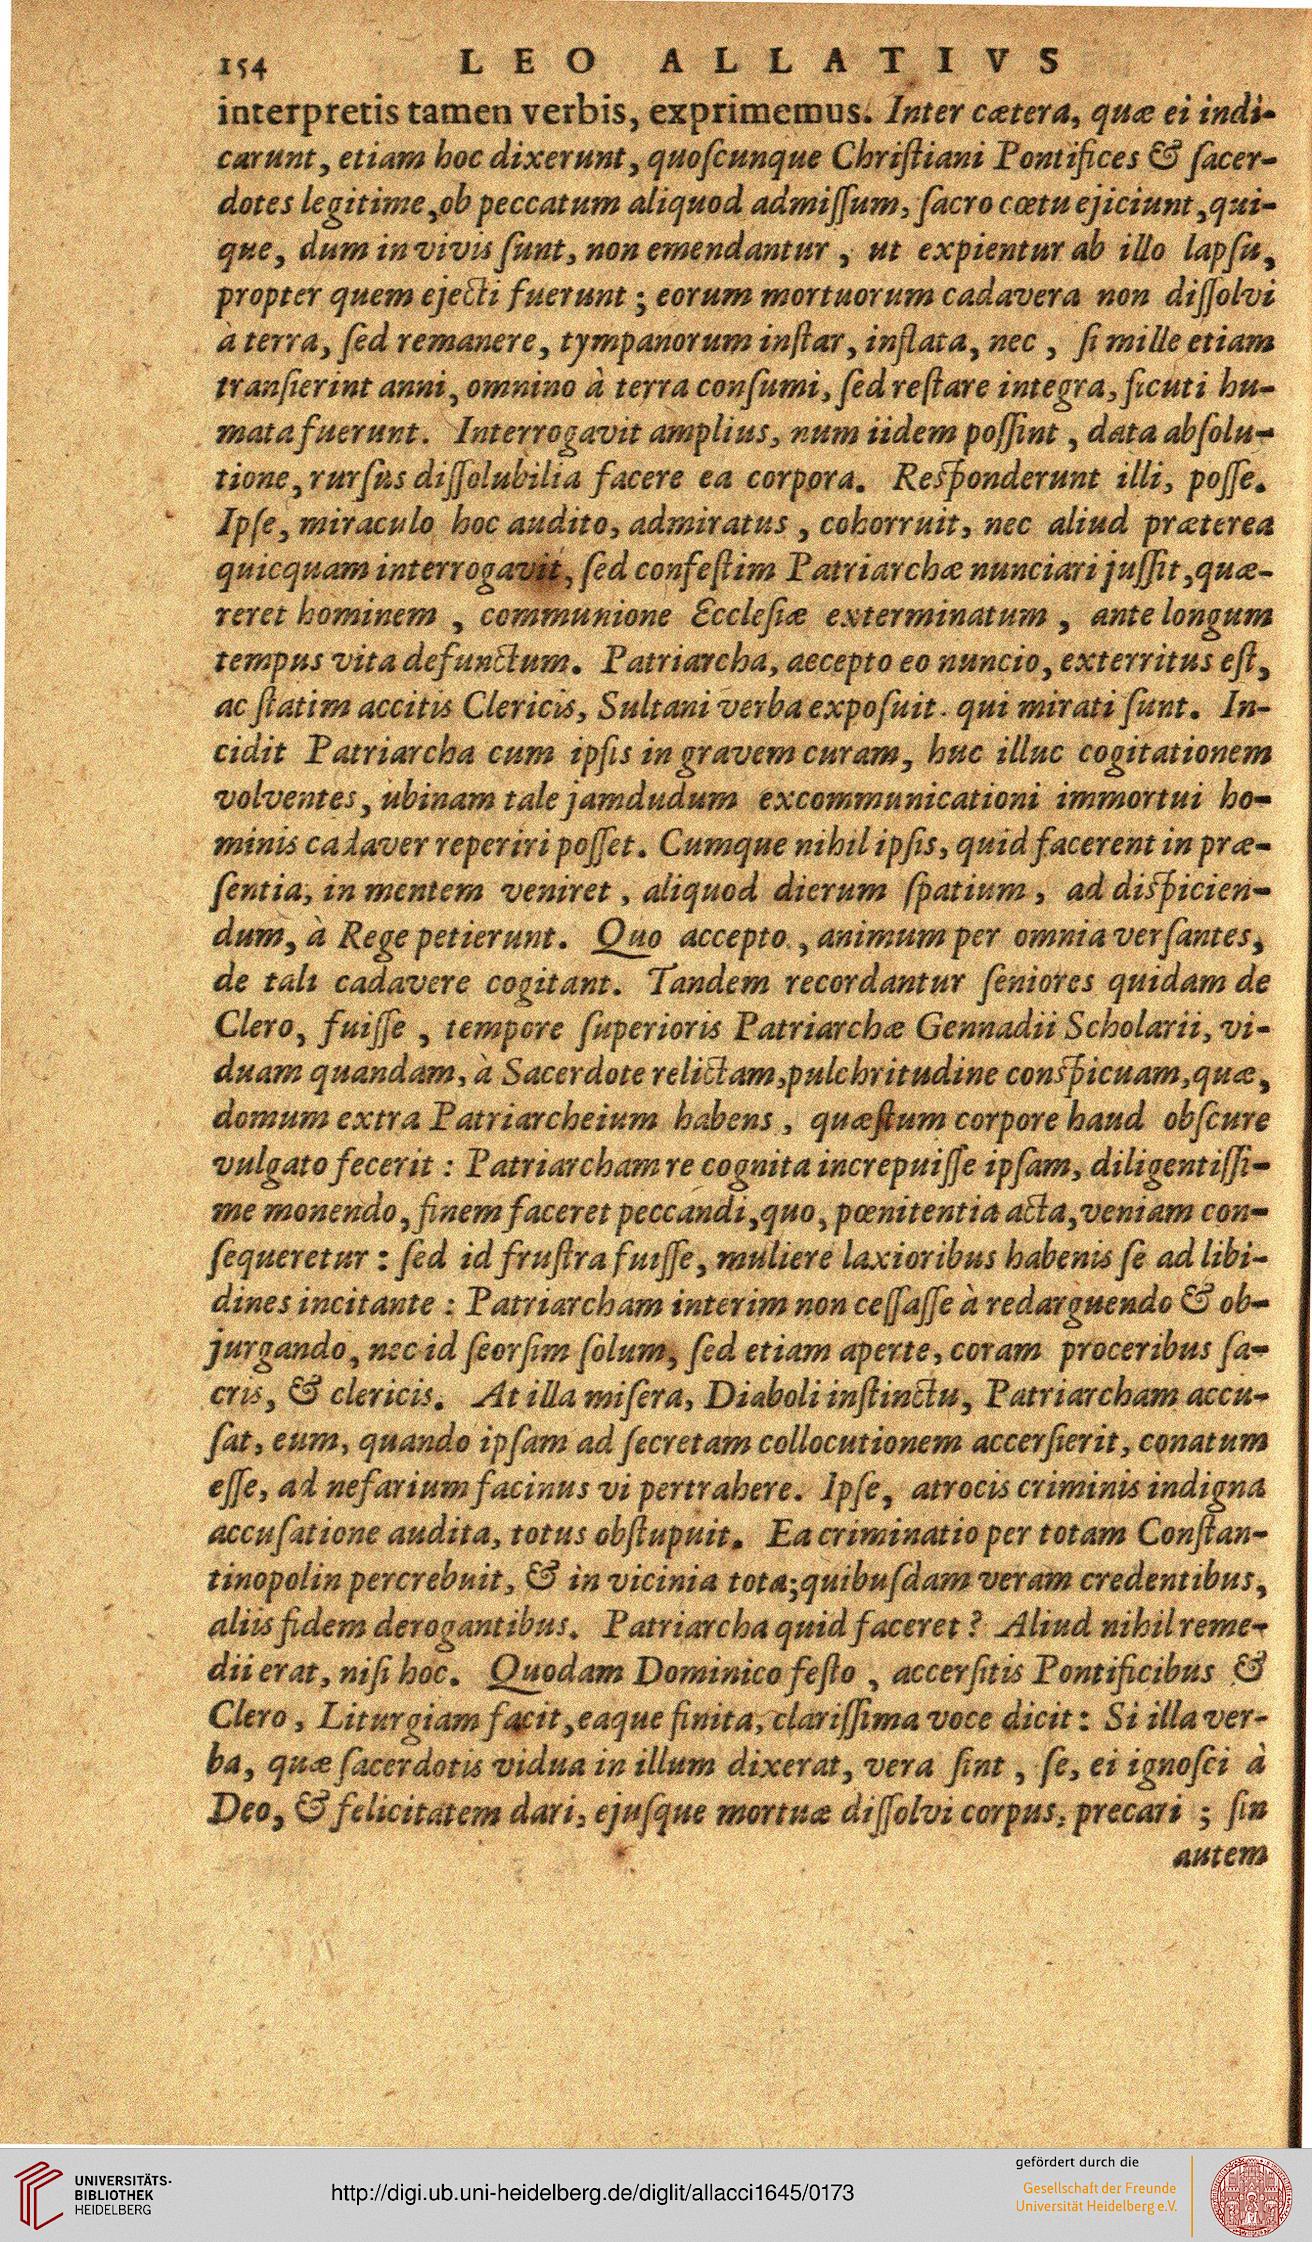 154 LEO ALLATIVS
interpretis tamen verbis, exprimemus. Inter cætera, quæ ei indi-
carunt, etiam hoc dixerunt, quoſcunque Chriſtiani Pontifices & ſacer-
dotes legitime, ob peccatum aliquod admiſſum, ſacro cœtu ejiciunt, qui-
que, dum in vivis ſunt, non emendantur, ut expientur ab illo lapſu,
propter quem ejecti fuerunt; eorum mortuorum cadavera non diſſolvi
à terra, ſed remanere, tympanorum inſtar, inflata, nec, ſi mille etiam
tranſierint anni, omnino à terra conſumi, ſed reſtare integra, ſicuti hu-
mata fuerunt. Interrogavit amplius, num iidem poſſint, data abſolu-
tione, rurſus diſſolubilia facere ea corpora. Reſponderunt illi, poſſe.
Ipſe, miraculo hoc audito, admiratus, cohorruit, nec aliud præterea
quicquam interrogavit, ſed confeſtim Patriarchæ nunciari juſſit, quæ-
reret hominem, communione Eccleſiæ exterminatum, ante longum
tempus vita defunctum. Patriarcha, aecepto eo nuncio, exterritus eſt,
ac ſtatim accitis Clericis, Sultani verba expoſuit. qui mirati ſunt. In-
cidit Patriarcha cum ipſis in gravem curam, huc illuc cogitationem
volventes, ubinam tale jamdudum excommunicationi immortui ho-
minis cadaver reperiri poſſet. Cumque nihil ipſis, quid facerent in præ-
ſentia, in mentem veniret, aliquod dierum ſpatium, ad diſpicien-
dum, à Rege petierunt. Quo accepto, animum per omnia verſantes,
de tali cadavere cogitant. Tandem recordantur ſeniores quidam de
Clero, fuiſſe, tempore ſuperioris Patriarchæ Gennadii Scholarii, vi-
duam quandam, à Sacerdote relictam, pulchritudine conſpicuam, quæ,
domum extra Patriarcheium habens, quæſtum corpore haud obſcure
vulgato fecerit: Patriarcham re cognita increpuiſſe ipſam, diligentiſſi-
me monendo, finem faceret peccandi, quo, pœnitentia acta, veniam con-
ſequeretur: ſed id fruſtra fuiſſe, muliere laxioribus habenis ſe ad libi-
dines incitante: Patriarcham interim non ceſſaſſe à redarguendo & ob-
jurgando, nec id ſeorſim ſolum, ſed etiam aperte, coram proceribus ſa-
cris, & clericis. At illa miſera, Diaboli inſtinctu, Patriarcham accu-
ſat, eum, quando ipſam ad ſecretam collocutionem accerſierit, conatum
eſſe, ad nefarium facinus vi pertrahere. Ipſe, atrocis criminis indigna
accuſatione audita, totus obſtupuit. Ea criminatio per totam Conſtan-
tinopolin percrebuit, & in vicinia tota; quibuſdam veram credentibus,
aliis fidem derogantibus. Patriarcha quid faceret? Aliud nihil reme-
dii erat, niſi hoc. Quodam Dominico feſto, accerſitis Pontificibus &
Clero, Liturgiam facit, eaque finita, clariſſima voce dicit: Si illa ver-
ba, quæ ſacerdotis vidua in illum dixerat, vera ſint, ſe, ei ignoſci à
Deo, & felicitatem dari, ejuſque mortuæ diſſolvi corpus, precari; ſin
autem
UNIVERSITÄTS-
BIBLIOTHEK
HEIDELBERG
http://digi.ub.uni-heidelberg.de/diglit/allacci1645/0173
gefördert durch die
Gesellschaft der Freunde
Universität Heidelberg e.V.